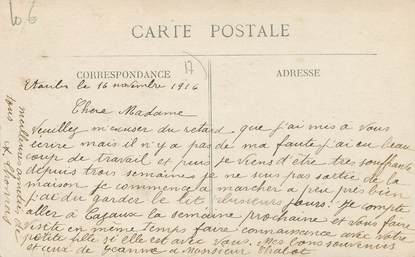 CARTE POSTALE
CORRESPONDANCE
17
ADRESSE
le 16 novembre 1916
Chere Madame
Veuillez m'excuser du retard que j'ai mis à vous
écrire mais il n'y a pas de ma faute j'ai eu beau
coup de travail et puis je viens d'être tres souffrante
depuis trois semaines je ne suis pas sortie de la
maison je commence a marcher a peu près bien
j'ai du garder le lit plusieurs jours. Je compte
aller à Cazaux la semaine prochaine et vous faire
visite en même temps faire connaissance avec votre
petite fille si elle est avec vous. Mes bons souvenirs
et ceux de Jeanne à Monsieur
meilleures amitiés